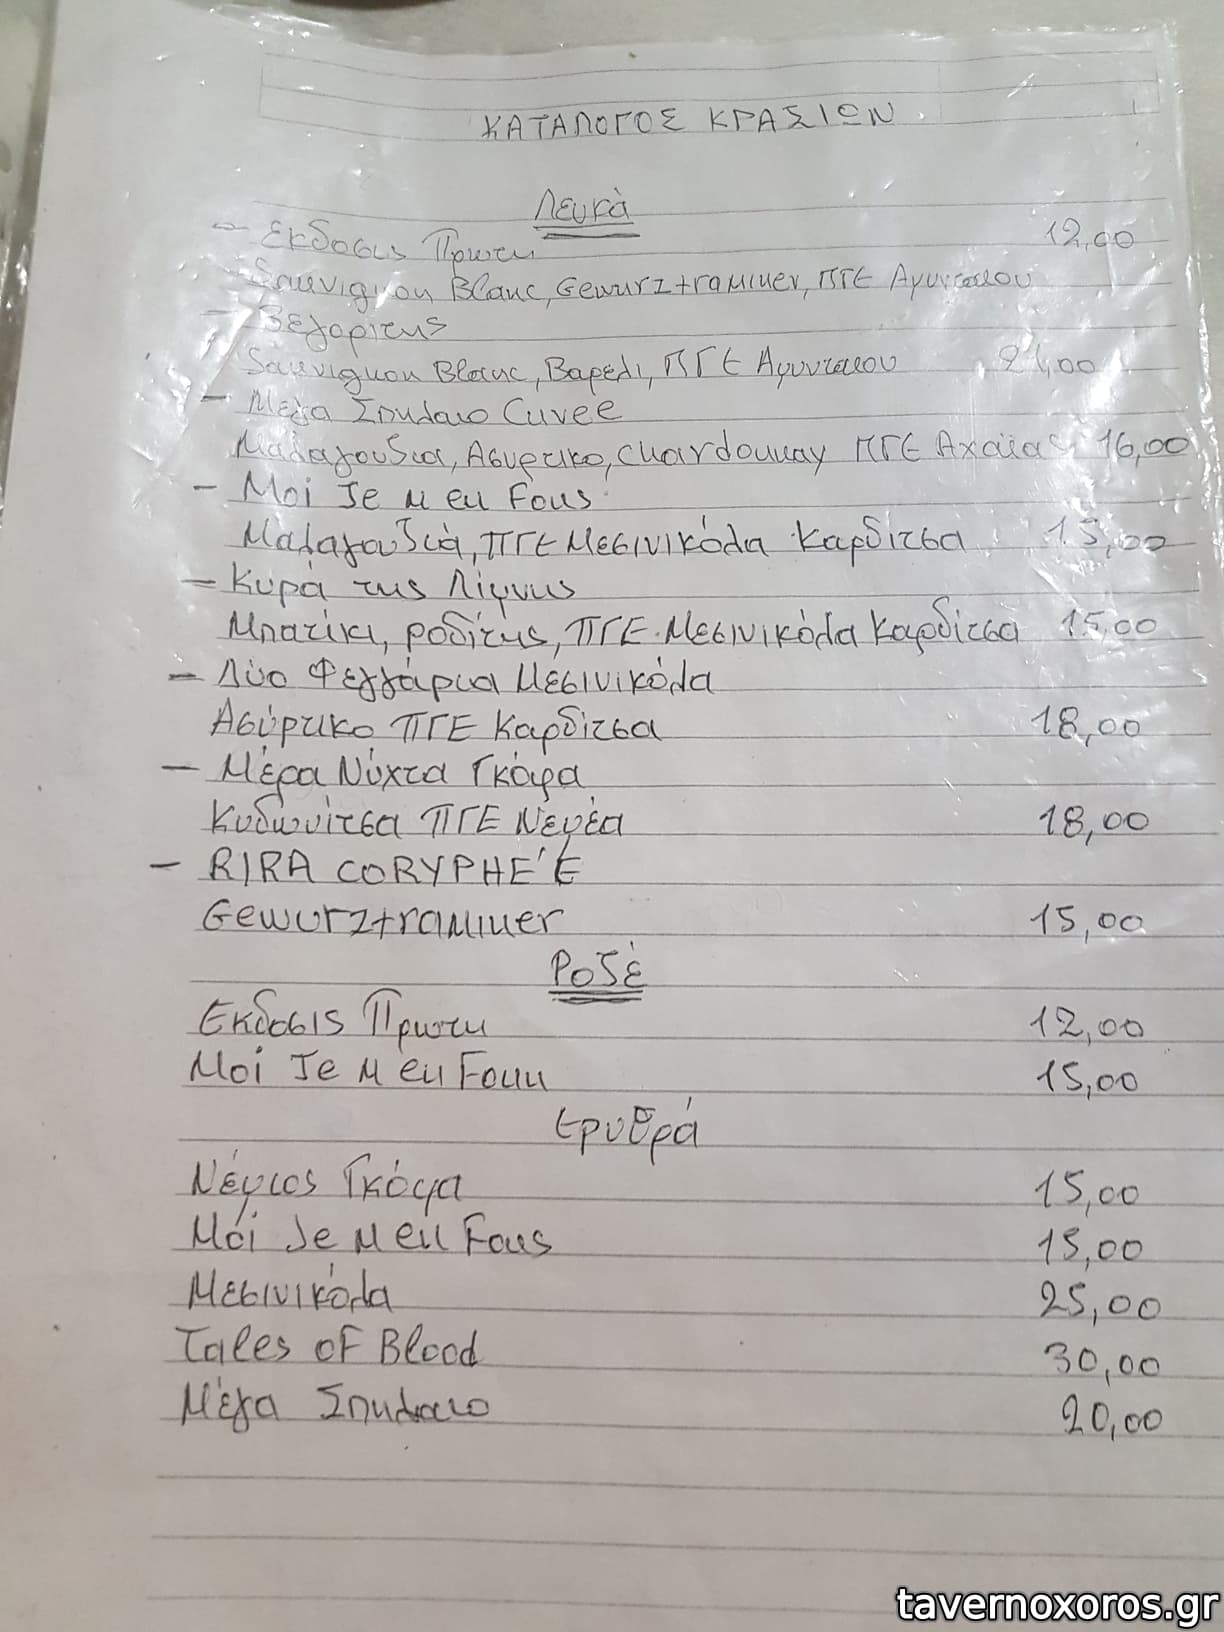 ΚΑΤΑΛΟΓΟΣ ΚΡΑΣΙΩΝ
Λευκά
- Εκδοσις Πρωτη 12,00
Sauvignon Blanc, Gewurztraminer, ΠΓΕ Αμυνταιου
- Βεγοριτης
Sauvignon Blanc, Βαρέλι, ΠΓΕ Αμυνταιου 21,00
- Μεγα Σπηλαιο Cuvee
Μαλαγουδια, Ασυρτικο, Chardonnay ΠΓΕ Αχαϊας 16,00
- Moi Je M en Fous
Μαλαγουζιά, ΠΓΕ Μεσινικόλα Καρδίτσα 15,00
- Κυρά της Λίμνης
Μπατίκι, ροδίτης, ΠΓΕ Μεσινικόλα Καρδίτσα 15,00
- Δύο Φεγγάρια Μεσινικόλα
Ασύρτικο ΠΓΕ Καρδίτσα 18,00
- Μέρα Νύχτα Γκόφα
Κυδωνίτσα ΠΓΕ Νεμέα 18,00
- RIRA CORYPHE'E
Gewurztraminer 15,00
Ροζέ
Εκδοσις Πρωτη 12,00
Moi Je M en Foun 15,00
Ερυθρά
Νέμιος Γκόφα 15,00
Moi Je M en Fous 15,00
Μεσινικόλα 25,00
Tales of Blood 30,00
Μέγα Σπηλαιο 20,00
tavernoxoros.gr